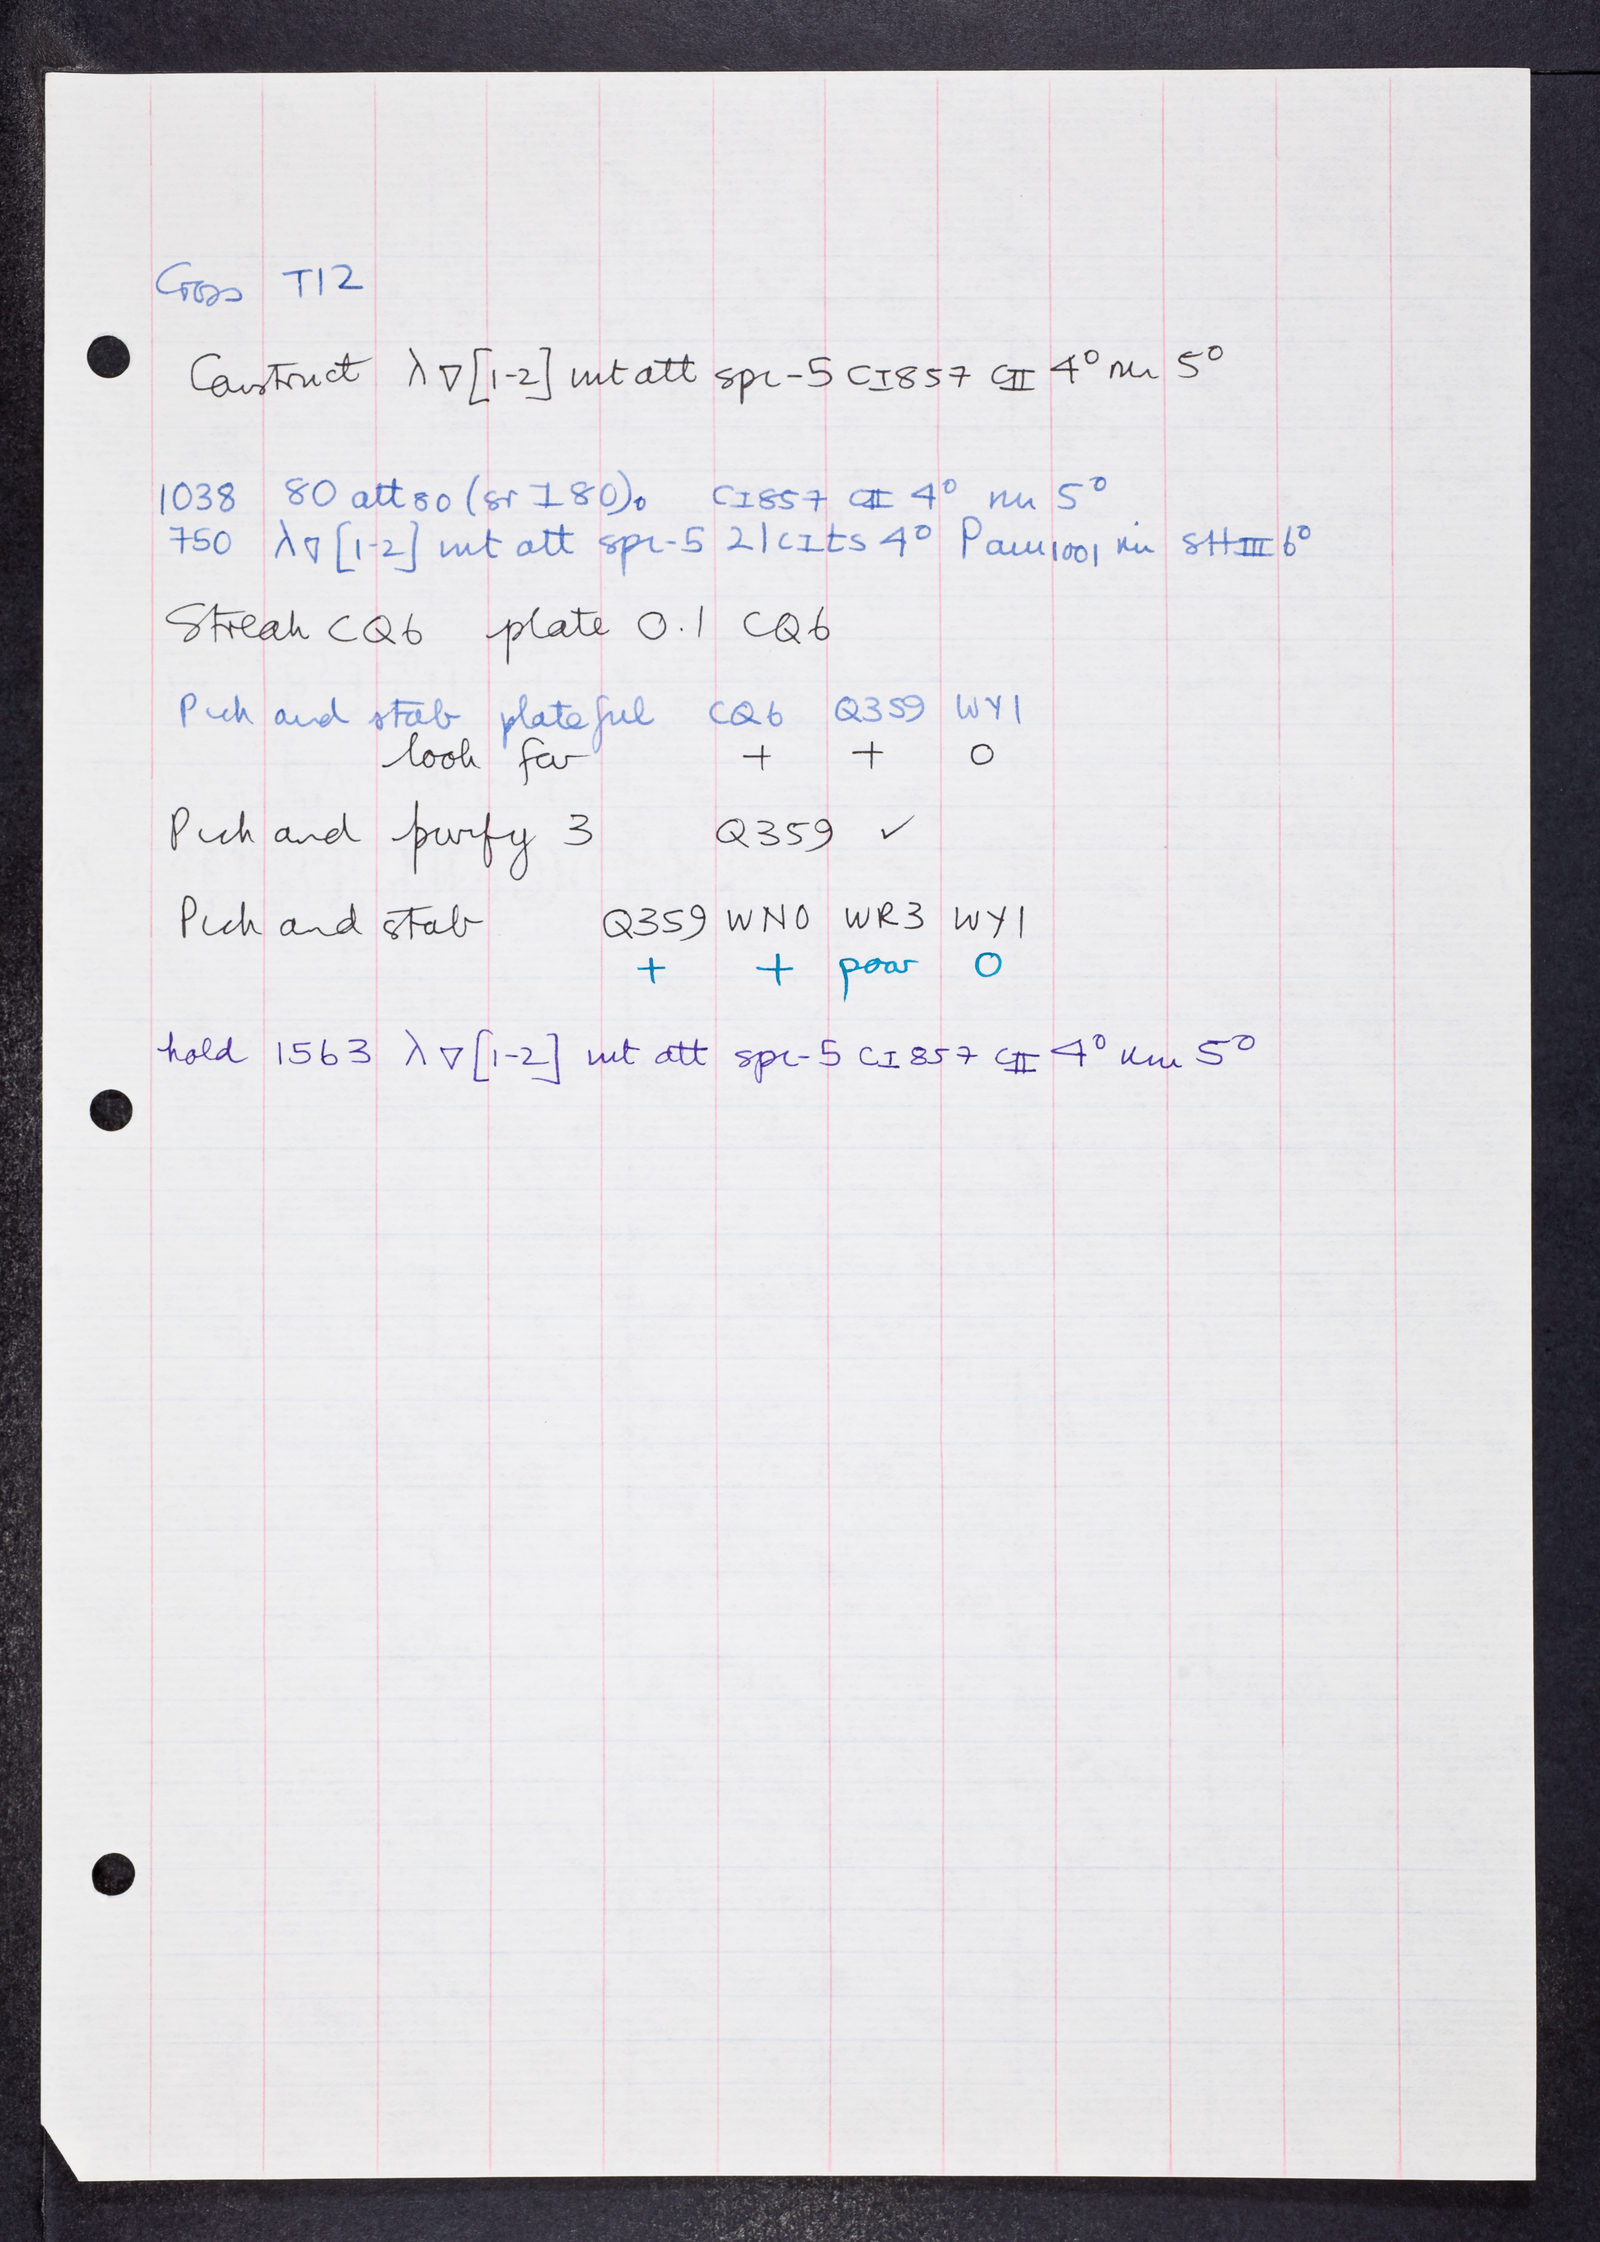 Cross T12
Construct λ∇[1-2] int att spi-5 CI857 CII 4° nin 5°
1038 80 att80 (sr I 80)o CI857 CII 4° nin 5°
750 λ∇[1-2] int att spi-5 21CIts 4° Pam1001 nin SHIII 6°
Streak CQ6 plate 0.1 CQ6
Pick and stab plateful CQ6 Q359 WY1
look for + + O
Pick and purify 3 Q359 ✓
Pick and stab Q359 WN0 WR3 WY1
+ + poor O
hold 1563 λ∇[1-2] int att spi-5 CI857 CII 4° nin 5°